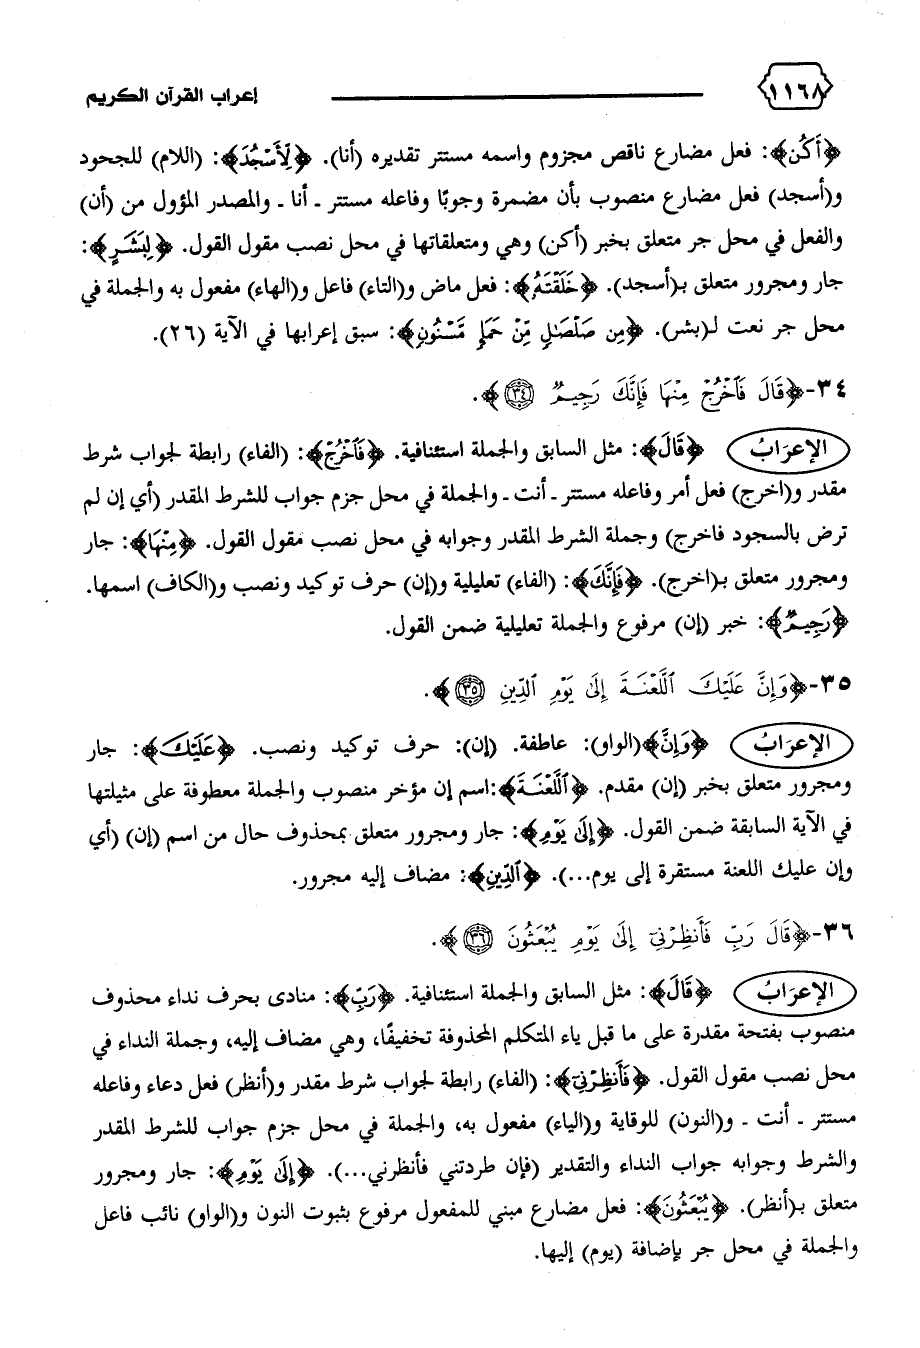 ١١٦٨ إعراب القرآن الكريم
﴿أَكُن﴾: فعل مضارع ناقص مجزوم واسمه مستتر تقديره (أنا). ﴿لِأَسْجُدَ﴾: (اللام) للجحود
و(أسجد) فعل مضارع منصوب بأن مضمرة وجوبًا وفاعله مستتر ـ أنا ـ والمصدر المؤول من (أن)
والفعل في محل جر متعلق بخبر (أكن) وهي ومتعلقاتها في محل نصب مقول القول. ﴿لِبَشَرٍ﴾:
جار ومجرور متعلق بـ(أسجد). ﴿خَلَقْتَهُ﴾: فعل ماض و(التاء) فاعل و(الهاء) مفعول به والجملة في
محل جر نعت لـ(بشر). ﴿مِن صَلْصَٰلٍ مِّنْ حَمَإٍ مَّسْنُونٍ﴾: سبق إعرابها في الآية (٢٦).
٣٤-﴿قَالَ فَٱخْرُجْ مِنْهَا فَإِنَّكَ رَجِيمٌ ٣٤﴾.
الإعرَابُ ﴿قَالَ﴾: مثل السابق والجملة استئنافية. ﴿فَٱخْرُجْ﴾: (الفاء) رابطة لجواب شرط
مقدر و(اخرج) فعل أمر وفاعله مستتر ـ أنت ـ والجملة في محل جزم جواب للشرط المقدر (أي إن لم
ترض بالسجود فاخرج) وجملة الشرط المقدر وجوابه في محل نصب مقول القول. ﴿مِنْهَا﴾: جار
ومجرور متعلق بـ(اخرج). ﴿فَإِنَّكَ﴾: (الفاء) تعليلية و(إن) حرف توكيد ونصب و(الكاف) اسمها.
﴿رَجِيمٌ﴾: خبر (إن) مرفوع والجملة تعليلية ضمن القول.
٣٥-﴿وَإِنَّ عَلَيْكَ ٱللَّعْنَةَ إِلَىٰ يَوْمِ ٱلدِّينِ ٣٥﴾.
الإعرَابُ ﴿وَإِنَّ﴾(الواو): عاطفة. (إن): حرف توكيد ونصب. ﴿عَلَيْكَ﴾: جار
ومجرور متعلق بخبر (إن) مقدم. ﴿ٱللَّعْنَةَ﴾:اسم إن مؤخر منصوب والجملة معطوفة على مثيلتها
في الآية السابقة ضمن القول. ﴿إِلَىٰ يَوْمِ﴾: جار ومجرور متعلق بمحذوف حال من اسم (إن) (أي
وإن عليك اللعنة مستقرة إلى يوم...). ﴿ٱلدِّينِ﴾: مضاف إليه مجرور.
٣٦-﴿قَالَ رَبِّ فَأَنظِرْنِىٓ إِلَىٰ يَوْمِ يُبْعَثُونَ ٣٦﴾.
الإعرَابُ ﴿قَالَ﴾: مثل السابق والجملة استئنافية. ﴿رَبِّ﴾: منادى بحرف نداء محذوف
منصوب بفتحة مقدرة على ما قبل ياء المتكلم المحذوفة تخفيفًا، وهي مضاف إليه، وجملة النداء في
محل نصب مقول القول. ﴿فَأَنظِرْنِىٓ﴾: (الفاء) رابطة لجواب شرط مقدر و(أنظر) فعل دعاء وفاعله
مستتر ـ أنت ـ و(النون) للوقاية و(الياء) مفعول به، والجملة في محل جزم جواب للشرط المقدر
والشرط وجوابه جواب النداء والتقدير (فإن طردتني فأنظرني...). ﴿إِلَىٰ يَوْمِ﴾: جار ومجرور
متعلق بـ(أنظر). ﴿يُبْعَثُونَ﴾: فعل مضارع مبني للمفعول مرفوع بثبوت النون و(الواو) نائب فاعل
والجملة في محل جر بإضافة (يوم) إليها.